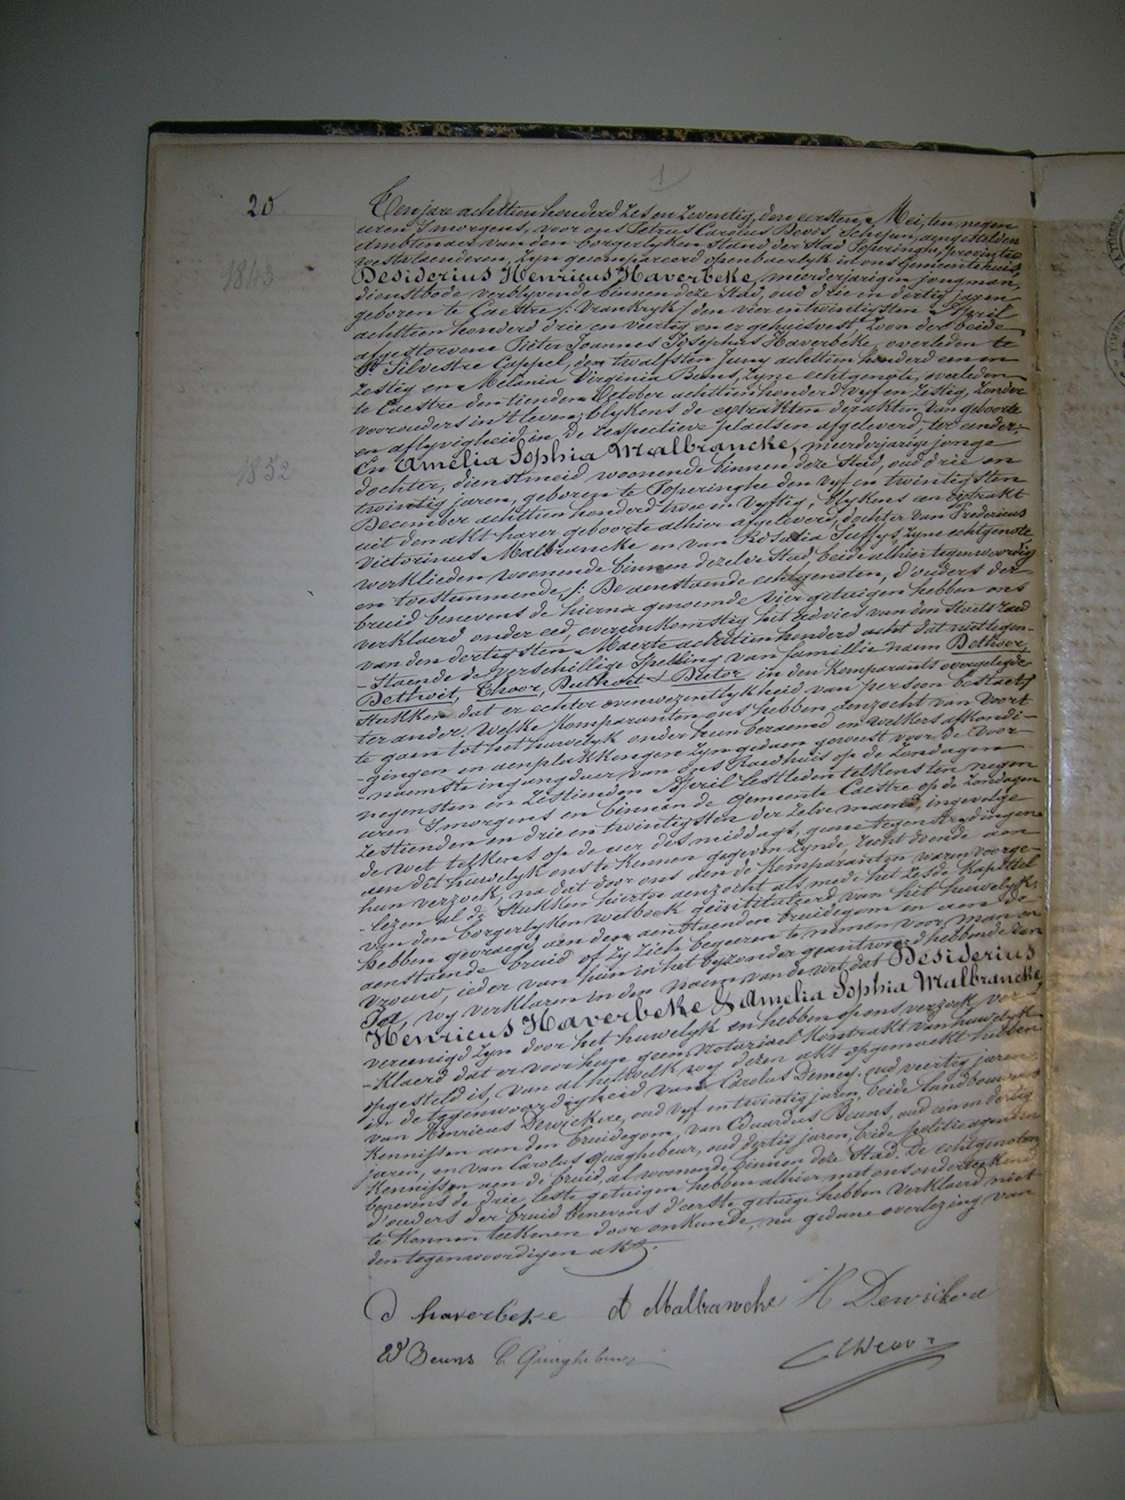 20
Ten jare achttien honderd zes en zeventig, den eersten Mei, ten negen
uren 's morgens, voor ons Petrus Carolus Devos, Schepen, aengestelden
Ambtenaer van den borgerlyken Stand der Stad Poperinghe, provintie
Westvlaenderen, zyn gecompareerd openbaerlyk in ons Gemeentehuis,
1843
Desiderius Henricus Haverbeke, meerderjarigen jongman,
dienstbode verblyvende binnen deze Stad, oud drie en dertig jaren
geboren te Caestre /: Vrankryk / den vier en twintigsten April
achttien honderd drie en veertig en er gehuisvest, Zoon der beide
afgestorvene Pieter Joannes Josephus Haverbeke, overleden te
St Silvestre Cappel, den twalfsten Juny achttien honderd een en
zestig en Melania Virginia Buns, zyne echtgenote, overleden
te Caestre den tienden October achttien honderd vyf en zestig, zonder
voorouders in 't leven; blykens de extrakten der akten van geboorte
en aflyvigheid in de respectieve plaetsen afgeleverd, ter eender;
1852
En Amelia Sophia Malbrancke, meerderjarige jonge
dochter, dienstmeid woonende binnen deze Stad, oud drie en
twintig jaren, geboren te Poperinghe den vyf en twintigsten
December achttien honderd twee en vyftig, blykens een extrakt
uit den akt harer geboorte alhier afgeleverd, dochter van Fredericus
Victorinus Malbrancke en van Rosalia Suffys, zyne echtgenote,
werklieden, woonende binnen dezelve Stad, beide alhier tegenwoordig
en toestemmende /: De aenstaende echtgenoten, d'ouders der
bruid benevens de hierna genoemde vier getuigen hebben ons
verklaerd onder eed, overeenkomstig het advies van den Staetsraed
van den dertigsten Maerte achttien honderd acht dat niettegen-
-staende de verschillige Spelling van famillie naem Dethoor,
Dethoit, Choor, Duthoit & Dutor in den Komparants overgelegde
Stukken dat er echter overwezentlykheid van persoon bestaet /
ter ander. Welke Komparanten ons hebben aenzocht van voort
te gaen tot het huwelyk onder hun beraemd en welkers afkondi-
-gingen en aenplakkingen zyn gedaen geweest voor de voor-
-naemste ingangdeur van ons Raedhuis op de Zondagen
negensten en zestienden April lestleden telkens ten negen
uren 's morgens en binnen de Gemeente Caestre op de Zondagen
zestienden en drie en twintigsten der zelve maend, ingevolge
de wet telkens op de uer des middags, geene tegenstrydingen
aen dit huwelyk ons te kennen gegeven zynde, recht doende aen
hun verzoek, na dat door ons aen de Komparanten waren voorge-
-lezen al de Stukken hiertoe aenzocht als mede het zesde Kapittel
van den borgerlyken wetboek geïntituleerd van het huwelyk,
hebben gevraegd aen den aenstaenden bruidegom en aen de
aenstaende bruid of zy zich begeeren te nemen voor man en
vrouw, ieder van hun in het byzonder geantwoord hebbende van
Ja, wy verklaren in den naem van de wet, dat Desiderius
Henricus Haverbeke & Amelia Sophia Malbrancke,
vereenigd zyn door het huwelyk en hebben op ons verzoek ver-
-klaerd dat er voor hun geen notariael Kontrakt van huwelyk
opgesteld is, van al hetwelk wy dezen akt opgemaekt hebben
in de tegenwoordigheid van Carolus Demey, oud veertig jaren,
van Henricus Dewickere, oud vyf en twintig jaren, beide landbouwers
Kennissen aen den bruidegom, van Eduardus Beuns, oud een en dertig
jaren, en van Carolus Quaghebeur, oud dertig jaren, beide politie agenten
Kennissen aen de bruid, al woonende binnen deze Stad. De echtgenoten,
benevens de drie leste getuigen hebben alhier met ons onderteekend
d'ouders der bruid benevens d'eerste getuige hebben verklaerd niet
te konnen teekenen door onkunde, na gedane overlezing van
den tegenwoordigen akt.
D haverbeke A Malbrancke H Dewickere
Ed Beuns C Quaghebeur